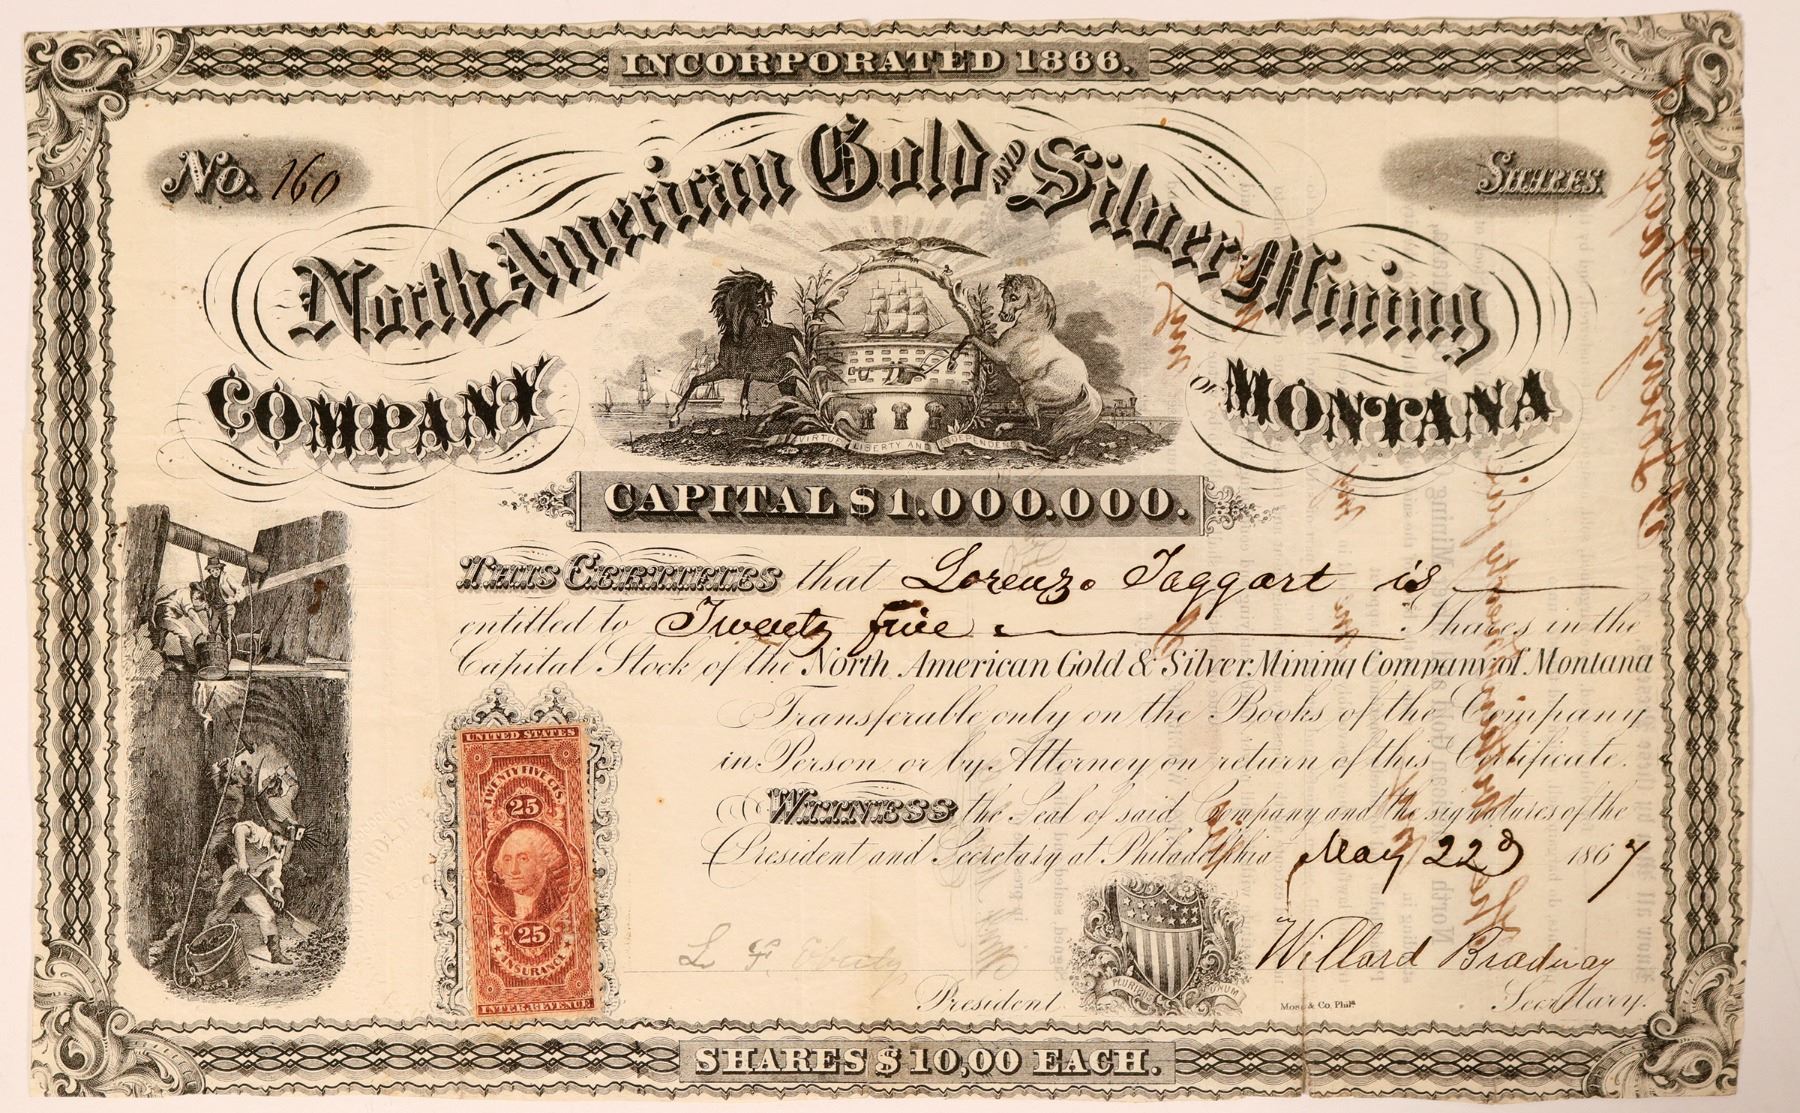 INCORPORATED 1866.
No. 160
SHARES.
North American Gold AND Silver Mining
COMPANY
OF MONTANA
VIRTUE LIBERTY AND INDEPENDENCE
CAPITAL $1.000.000.
THIS CERTIFIES that Lorenzo Taggart is
entitled to Twenty five Shares in the
Capital Stock of the North American Gold & Silver Mining Company of Montana
Transferable only on the Books of the Company
in Person or by Attorney on return of this Certificate.
WITNESS the Seal of said Company and the signatures of the
President and Secretary at Philadelphia May 22d 1867
UNITED STATES
TWENTY FIVE CTS.
25
25
INSURANCE
INTER. REVENUE
L F
President
PLURIBUS UNUM
Willard Bradway
Secretary.
& Co. Phila
SHARES $10,00 EACH.